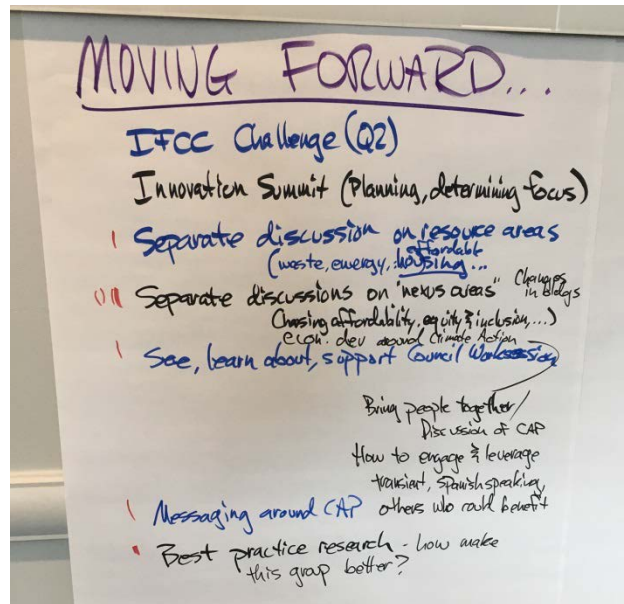 MOVING FORWARD...
IFCC Challenge (Q2)
Innovation Summit (Planning, determining focus)
Separate discussion on resource areas
affordable
(waste, energy, housing...
Separate discussions on "nexus areas"
Changes
in bldgs
(housing affordability, equity & inclusion,...)
econ. dev around Climate Action
See, learn about, support Council Worksession
Bring people together/
Discussion of CAP
How to engage & leverage
transient, spanish speaking,
others who could benefit
Messaging around CAP
Best practice research - how make
this group better?